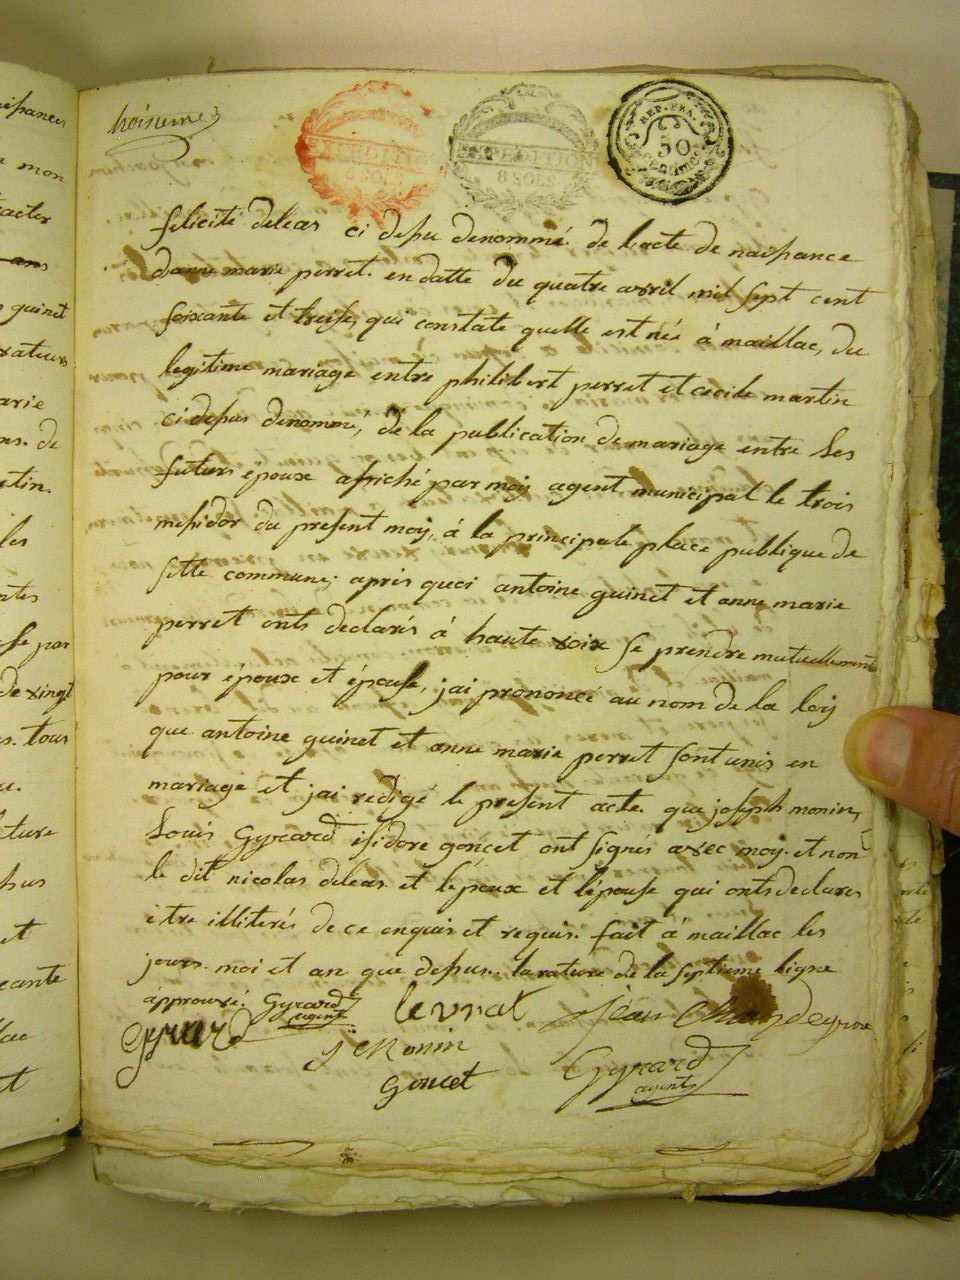 troisieme
EXPEDITION
8 SOLS
EXPEDITION
8 SOLS
REP. FRA.
50
centimes
felicité deleas ci depu denommé. de l'acte de naissance
danne marie perret. en datte du quatre avril mil sept cent
soixante et treise, qui constate quelle est née à maillac, du
legitime mariage entre philibert perret et cecile martin
ci depus denommé, de la publication de mariage entre les
futurs époux afriché par moij agent municipal le trois
messidor du present moij, á la principale place publique de
sette commune; aprés quoi antoine guinet et anne marie
perret onts declarés á haute voix se prendre mutuellement
pour époux et épouse, jai prononcé au nom de la loij
que antoine guinet et anne marie perret sont unis en
mariage et jai redigé le present acte que joseph monin,
Louis Gyrard isidore goncet ont signés avec moy. et non
le dit nicolas deleas. et lépoux et lépouse qui onts declarés
étre illiterés de ce enquis et requis. fait á maillac les
jours. moi et an que depus. la rature de la septieme ligne
approuvé. Gyrard agent
levrat
Jean
Gyrard
j Monin
goncet
Gyrard
agent
naissances
mon
guinet
arie
de
rtin.
les
ntes
par
de vingt
tous
ature
et